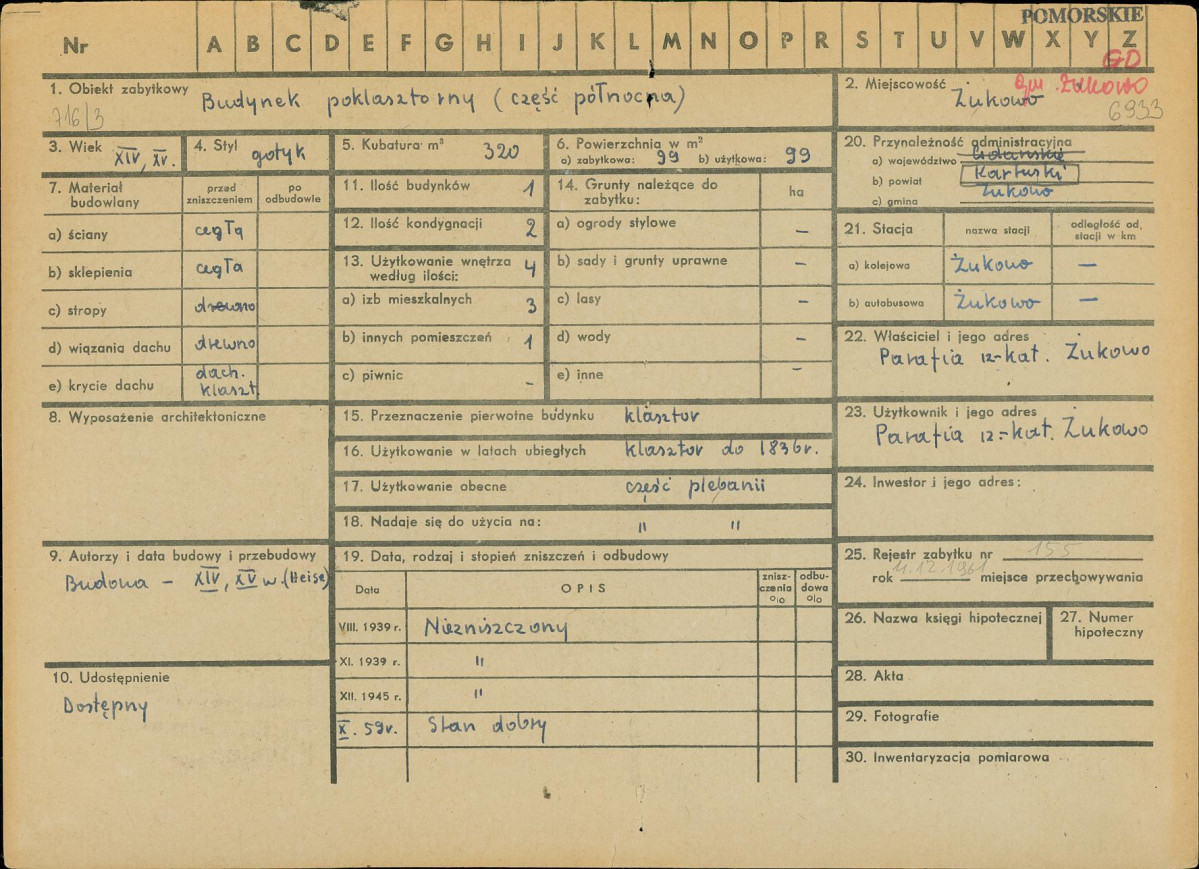 POMORSKIE
Nr A B C D E F G H I J K L M N O P R S T U V W X Y Z
GD
1. Obiekt zabytkowy Budynek poklasztorny (część północna)
716/3
2. Miejscowość gm. Żukowo
Żukowo
6933
3. Wiek XIV, XV.
4. Styl gotyk
5. Kubatura m³ 320
6. Powierzchnia w m²
a) zabytkowa: 99 b) użytkowa: 99
7. Materiał budowlany
przed zniszczeniem
po odbudowie
a) ściany cegłą
b) sklepienia cegła
c) stropy drewno
d) wiązania dachu drewno
e) krycie dachu dach. klaszt.
8. Wyposażenie architektoniczne
9. Autorzy i data budowy i przebudowy
Budowa – XIV, XV w. (Heise)
10. Udostępnienie
Dostępny
11. Ilość budynków 1
12. Ilość kondygnacji 2
13. Użytkowanie wnętrza według ilości: 4
a) izb mieszkalnych 3
b) innych pomieszczeń 1
c) piwnic -
14. Grunty należące do zabytku:
ha
a) ogrody stylowe –
b) sady i grunty uprawne –
c) lasy –
d) wody –
e) inne –
15. Przeznaczenie pierwotne budynku klasztor
16. Użytkowanie w latach ubiegłych klasztor do 1836r.
17. Użytkowanie obecne część plebanii
18. Nadaje się do użycia na: " "
19. Data, rodzaj i stopień zniszczeń i odbudowy
Data
OPIS
znisz-
czenia
%
odbu-
dowa
%
VIII. 1939 r. Niezniszczony
XI. 1939 r. "
XII. 1945 r. "
X. 59r. Stan dobry
20. Przynależność administracyjna
a) województwo Gdańskie
b) powiat Kartuski
c) gmina Żukowo
21. Stacja
nazwa stacji
odległość od stacji w km
a) kolejowa Żukowo –
b) autobusowa Żukowo –
22. Właściciel i jego adres
Parafia rz-kat. Żukowo
23. Użytkownik i jego adres
Parafia rz.-kat. Żukowo
24. Inwestor i jego adres:
25. Rejestr zabytku nr 155
rok 11.12.1961 miejsce przechowywania
26. Nazwa księgi hipotecznej
27. Numer hipoteczny
28. Akta
29. Fotografie
30. Inwentaryzacja pomiarowa